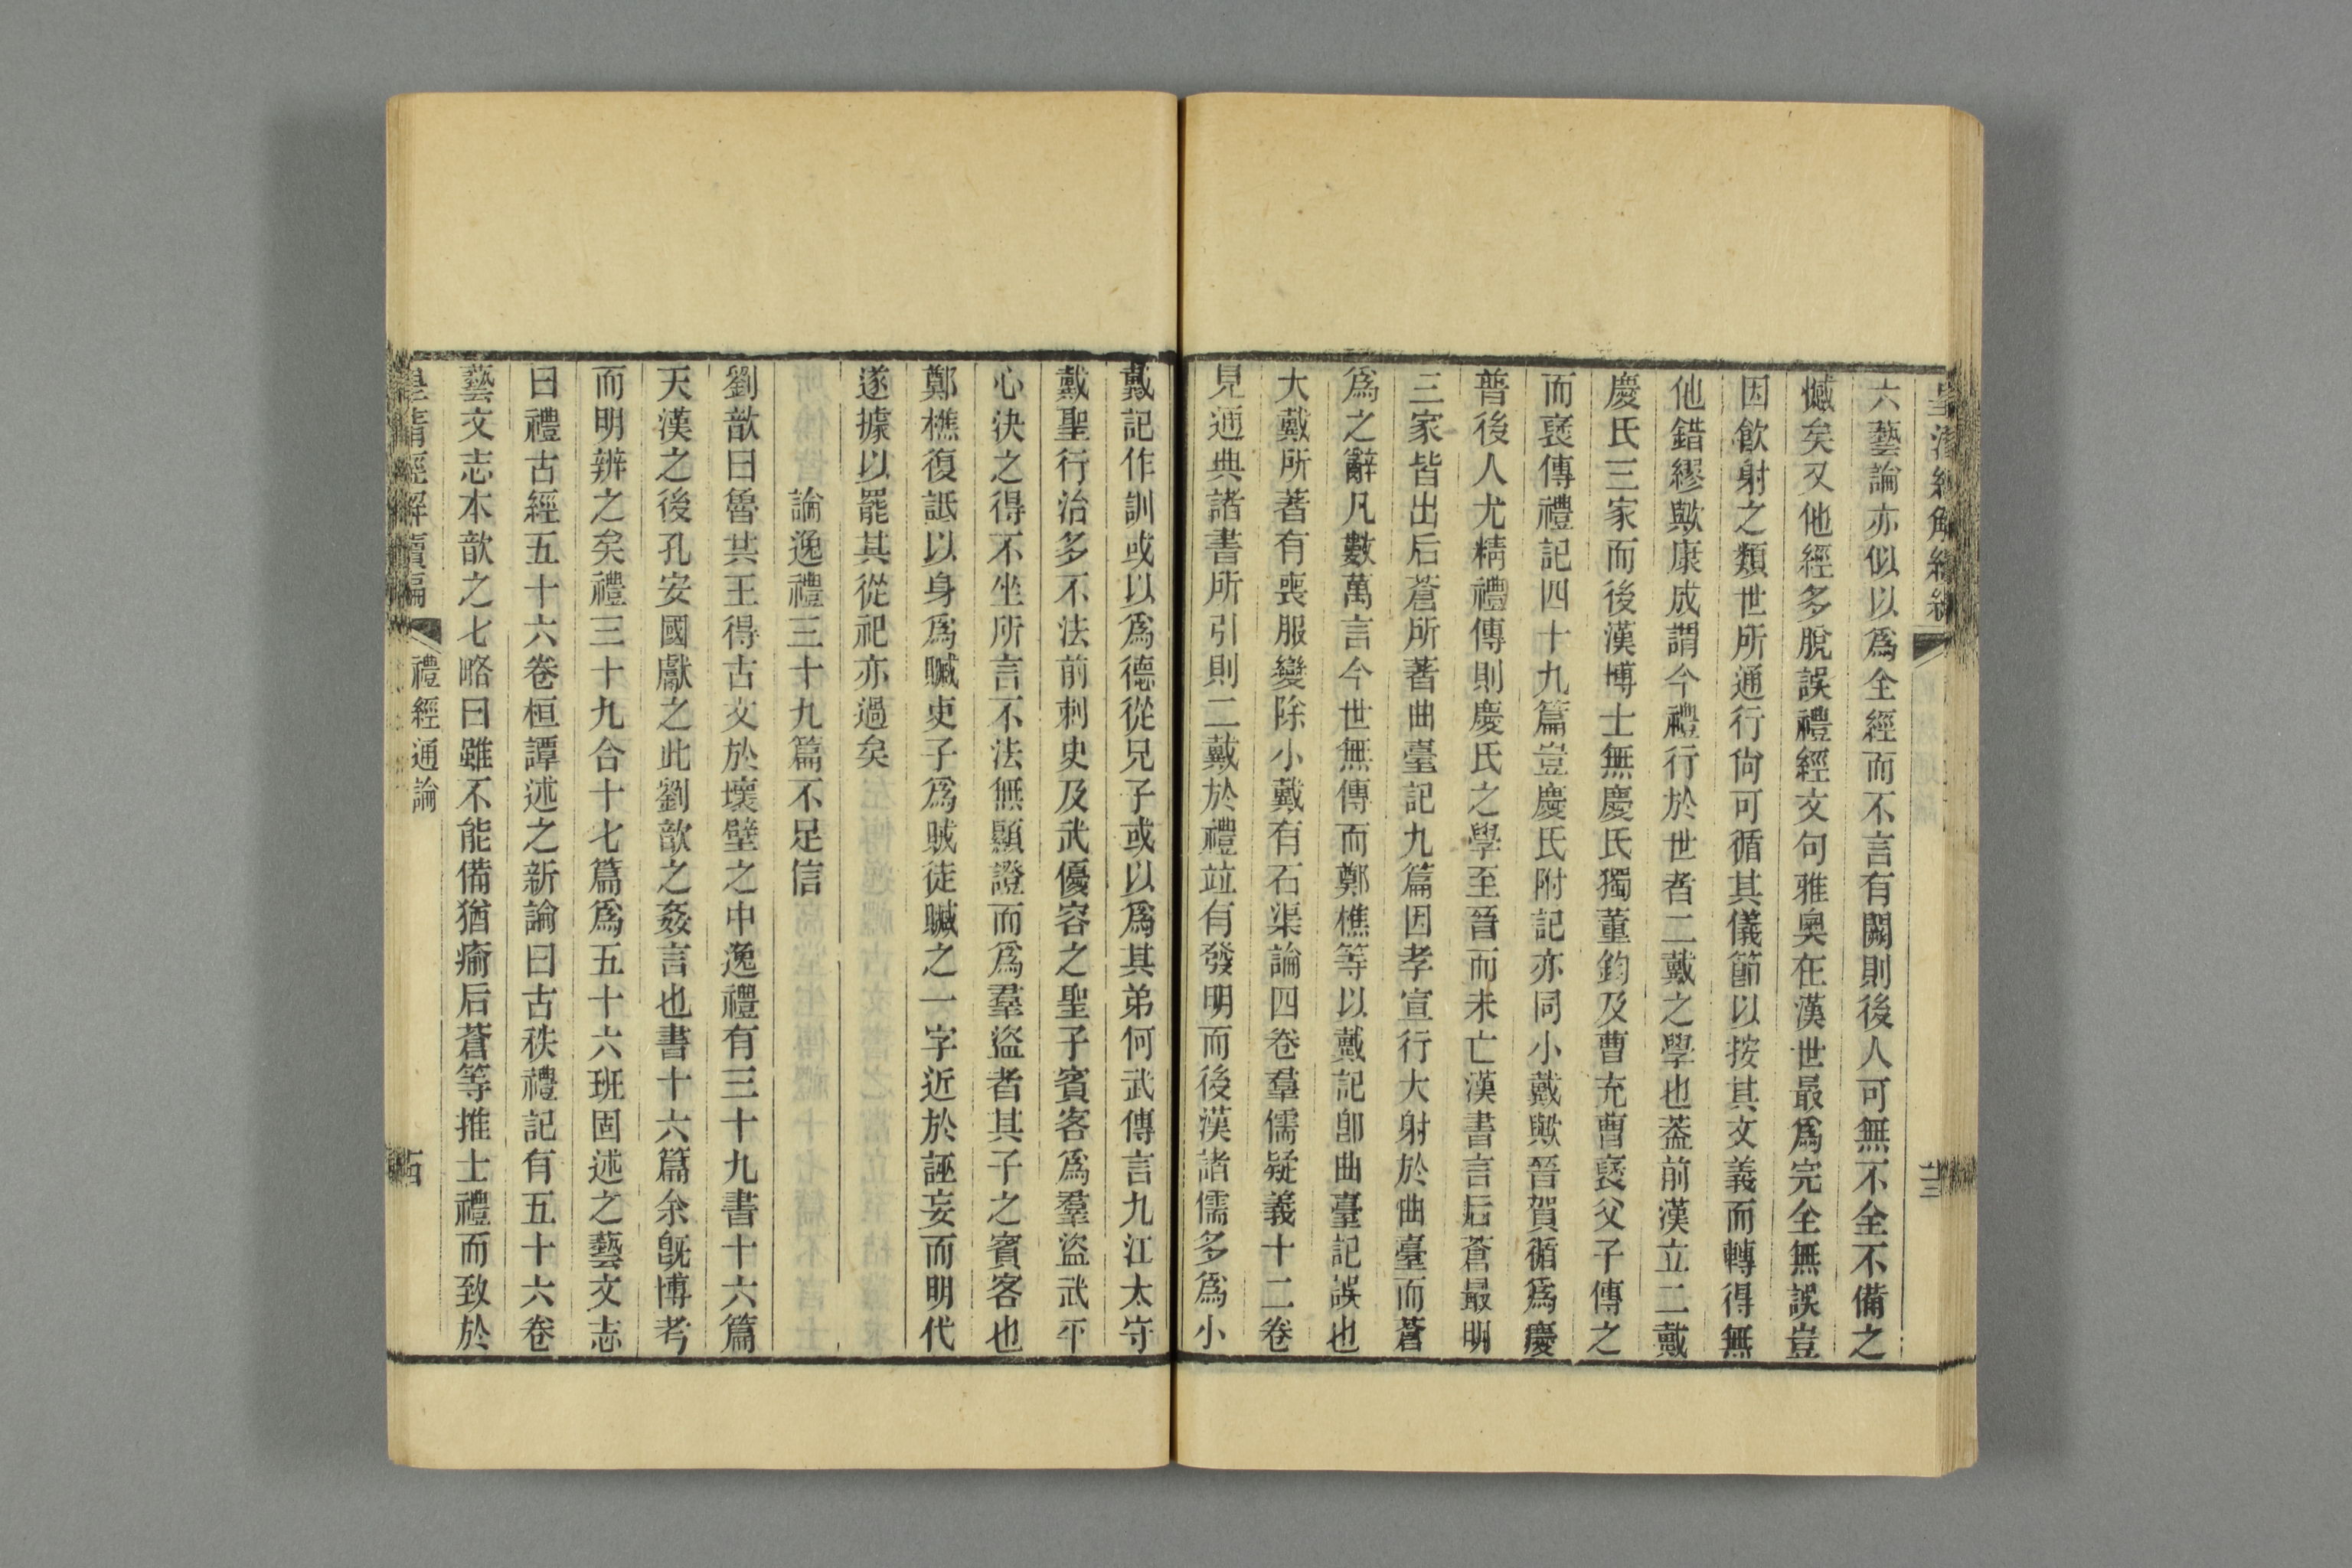 六藝論亦似以爲全經而不言有闕則後人可無不全不備之
憾矣又他經多脫誤禮經文句雅奧在漢世最爲完全無誤豈
因飮射之類世所通行尙可循其儀節以按其文義而轉得無
他錯繆歟康成謂今禮行於世者二戴之學也葢前漢立二戴
慶氏三家而後漢博士無慶氏獨董鈞及曹充曹襃父子傳之
而襃傳禮記四十九篇豈慶氏附記亦同小戴歟晉賀循爲慶
普後人尤精禮傳則慶氏之學至晉而未亡漢書言后蒼最明
三家皆出后蒼所著曲臺記九篇因孝宣行大射於曲臺而蒼
爲之辭凡數萬言今世無傳而鄭樵等以戴記卽曲臺記誤也
大戴所著有喪服變除小戴有石渠論四卷羣儒疑義十二卷
見通典諸書所引則二戴於禮竝有發明而後漢諸儒多爲小
戴記作訓或以爲德從兄子或以爲其弟何武傳言九江太守
戴聖行治多不法前刺史及武優容之聖子賓客爲羣盜武平
心決之得不坐所言不法無顯證而爲羣盜者其子之賓客也
鄭樵復詆以身爲贓吏子爲賊徒贓之一字近於誣妄而明代
遂據以罷其從祀亦過矣
論逸禮三十九篇不足信
劉歆曰魯共王得古文於壞壁之中逸禮有三十九書十六篇
天漢之後孔安國獻之此劉歆之姦言也書十六篇余旣博考
而明辨之矣禮三十九合十七篇爲五十六班固述之藝文志
曰禮古經五十六卷桓譚述之新論曰古秩禮記有五十六卷
藝文志本歆之七略曰雖不能備猶瘉后蒼等推士禮而致於
皇清經解續編 禮經通論